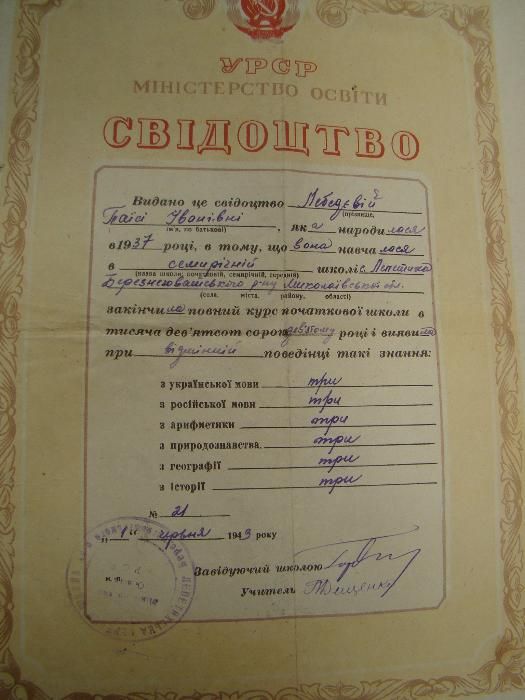 УРСР
МІНІСТЕРСТВО ОСВІТИ
СВІДОЦТВО
Видано це свідоцтво Лебедєвій
(прізвище,
Таїсі Іванівні, як а народилася
ім'я, по батькові)
в 1937 році, в тому, що вона навчалася
в семирічній школі с. Лепетиха
(назва школи: початковій, семирічній, середній)
Березнегуватського р-ну Миколаївської обл.
(села, міста, району, області)
закінчила повний курс початкової школи в
тисяча дев'ятсот сорок дев'ятому році і виявила
при відмінній поведінці такі знання:
з української мови три
з російської мови три
з арифметики три
з природознавства три
з географії три
з історії три
№ 21
„1“ червня 1949 року
Завідуючий школою
Учитель